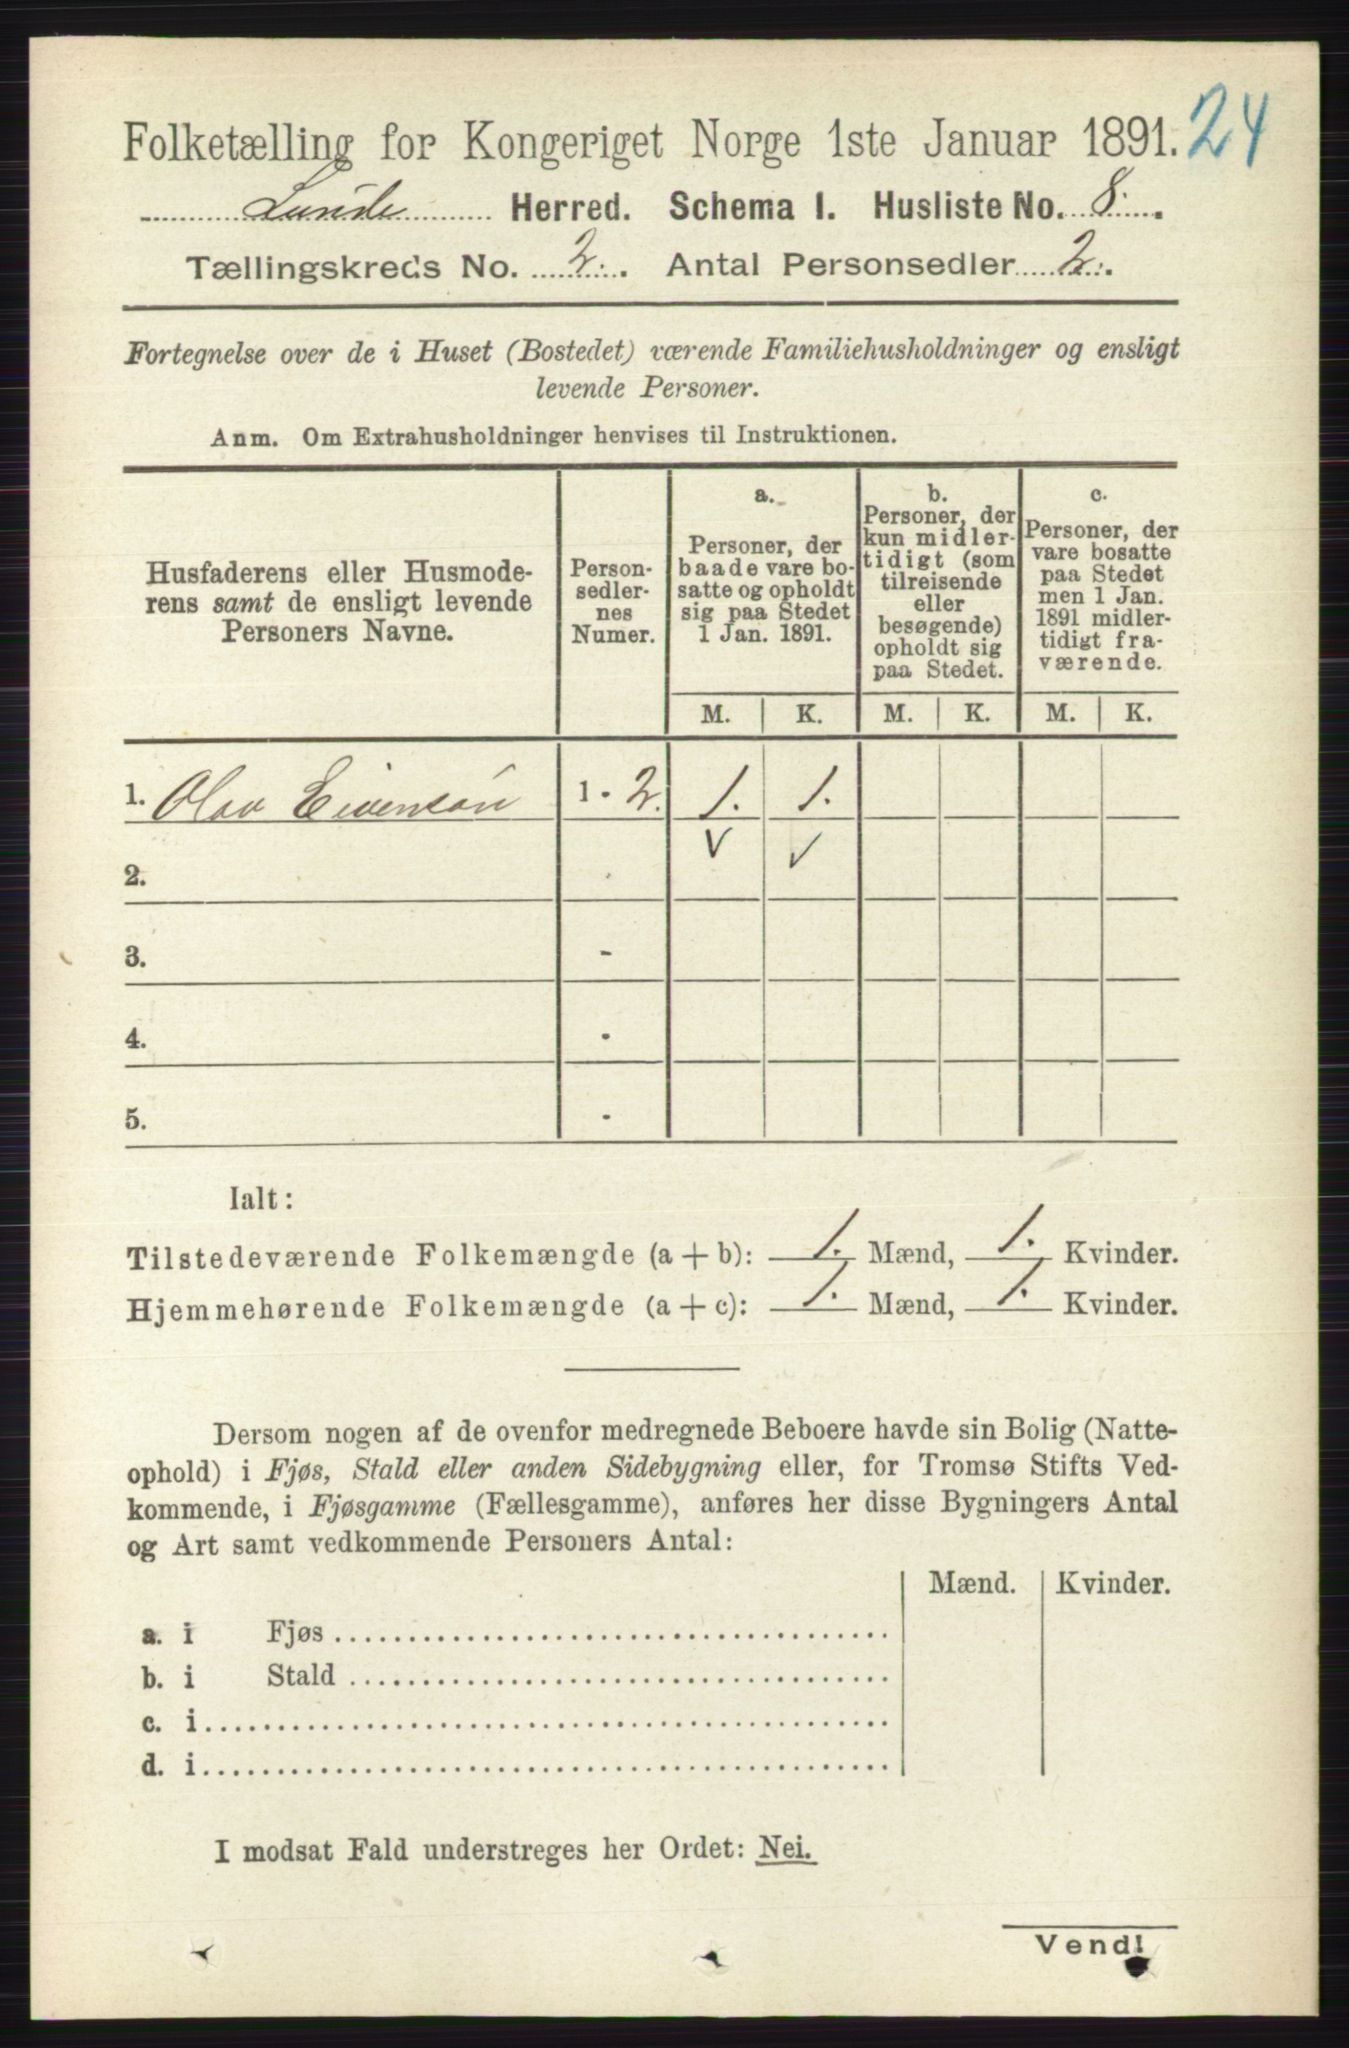 Folketælling for Kongeriget Norge 1ste Januar 1891. 24
Lunde Herred. Schema I. Husliste No. 8.
Tællingskreds No. 2. Antal Personsedler 2.
Fortegnelse over de i Huset (Bostedet) værende Familiehusholdninger og ensligt
levende Personer.
Anm. Om Extrahusholdninger henvises til Instruktionen.
Husfaderens eller Husmode-
rens samt de ensligt levende
Personers Navne.
Person-
sedler-
nes
Numer.
a.
Personer, der
baade vare bo-
satte og opholdt
sig paa Stedet
1 Jan. 1891.
b.
Personer, der
kun midler-
tidigt (som
tilreisende
eller
besøgende)
opholdt sig
paa Stedet.
c.
Personer, der
vare bosatte
paa Stedet
men 1 Jan.
1891 midler-
tidigt fra-
værende.
M. K. M. K. M. K.
1. Olav Eivensøn 1 - 2. 1. 1.
2. - V ✓
3. -
4. -
5. -
Ialt:
Tilstedeværende Folkemængde (a + b): 1. Mænd, 1. Kvinder.
Hjemmehørende Folkemængde (a + c): 1. Mænd, 1. Kvinder.
Dersom nogen af de ovenfor medregnede Beboere havde sin Bolig (Natte-
ophold) i Fjøs, Stald eller anden Sidebygning eller, for Tromsø Stifts Ved-
kommende, i Fjøsgamme (Fællesgamme), anføres her disse Bygningers Antal
og Art samt vedkommende Personers Antal:
Mænd. Kvinder.
a. i Fjøs
b. i Stald
c. i
d. i
I modsat Fald understreges her Ordet: Nei.
Vend!